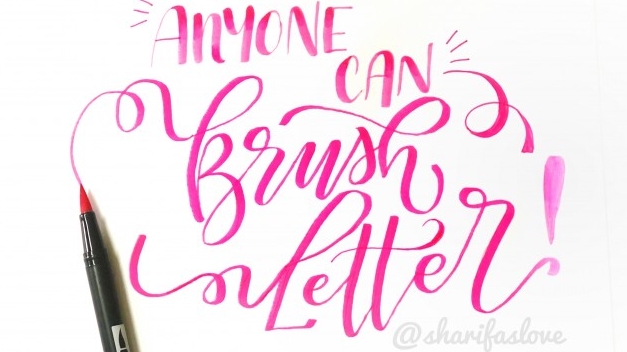 ANYONE
CAN
Brush
Letter!
@sharifaslove